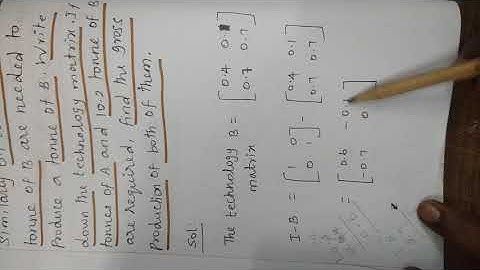 Similarly
tonne of B are needed to
Produce a tonne of B. Write
down the technology matrix. If
tonnes of A and 10.2 tonne of B
are required, find the gross
Production of both of them.
Sol:
The technology B = [0.4 0.1
matrix 0.7 0.7]
I-B = [1 0 - [0.4 0.1
0 1] 0.7 0.7]
= [0.6
-0.7